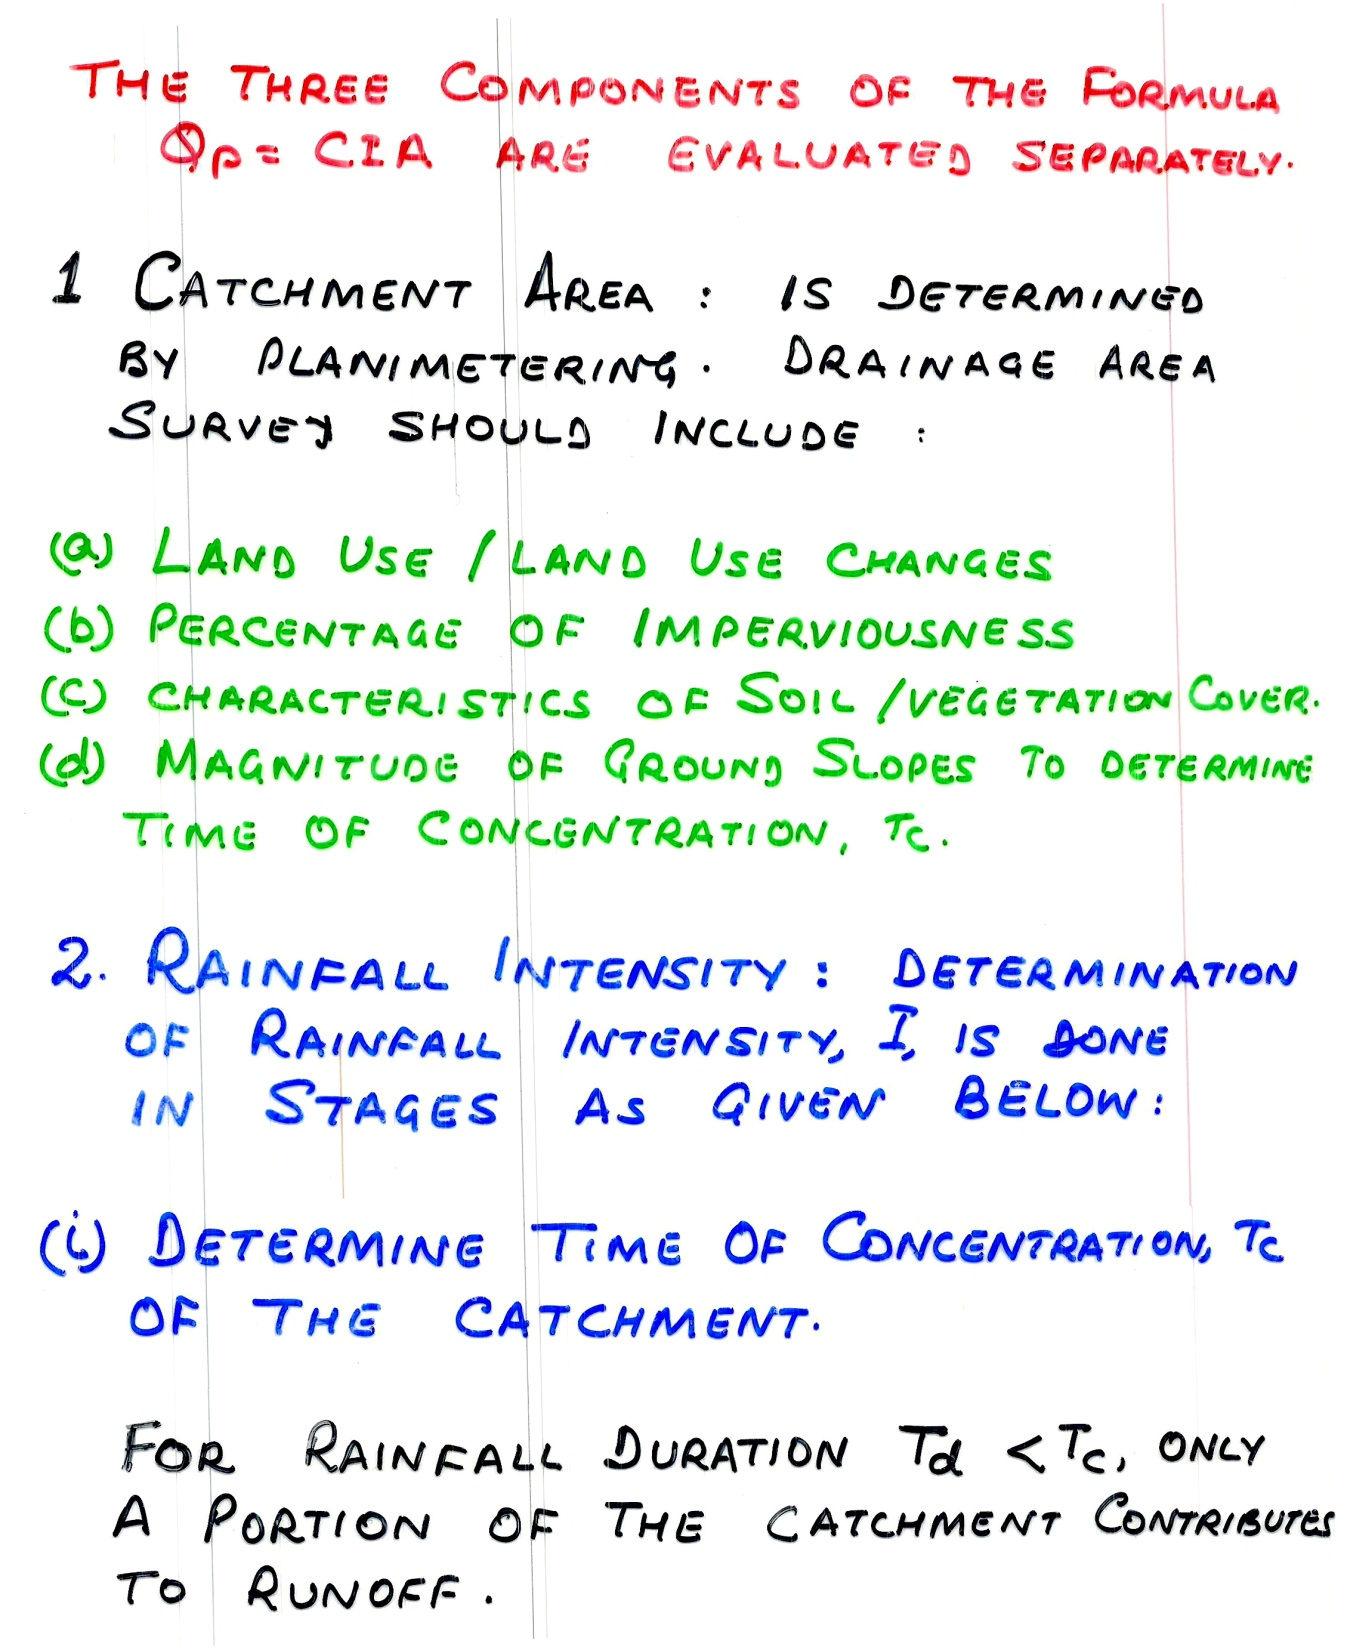 THE THREE COMPONENTS OF THE FORMULA
Qp = CIA ARE EVALUATED SEPARATELY.
1 CATCHMENT AREA : IS DETERMINED
BY PLANIMETERING. DRAINAGE AREA
SURVEY SHOULD INCLUDE :
(a) LAND USE / LAND USE CHANGES
(b) PERCENTAGE OF IMPERVIOUSNESS
(C) CHARACTERISTICS OF SOIL / VEGETATION COVER.
(d) MAGNITUDE OF GROUND SLOPES TO DETERMINE
TIME OF CONCENTRATION, Tc.
2. RAINFALL INTENSITY : DETERMINATION
OF RAINFALL INTENSITY, I, IS DONE
IN STAGES AS GIVEN BELOW :
(i) DETERMINE TIME OF CONCENTRATION, Tc
OF THE CATCHMENT.
FOR RAINFALL DURATION Td < Tc, ONLY
A PORTION OF THE CATCHMENT CONTRIBUTES
TO RUNOFF.